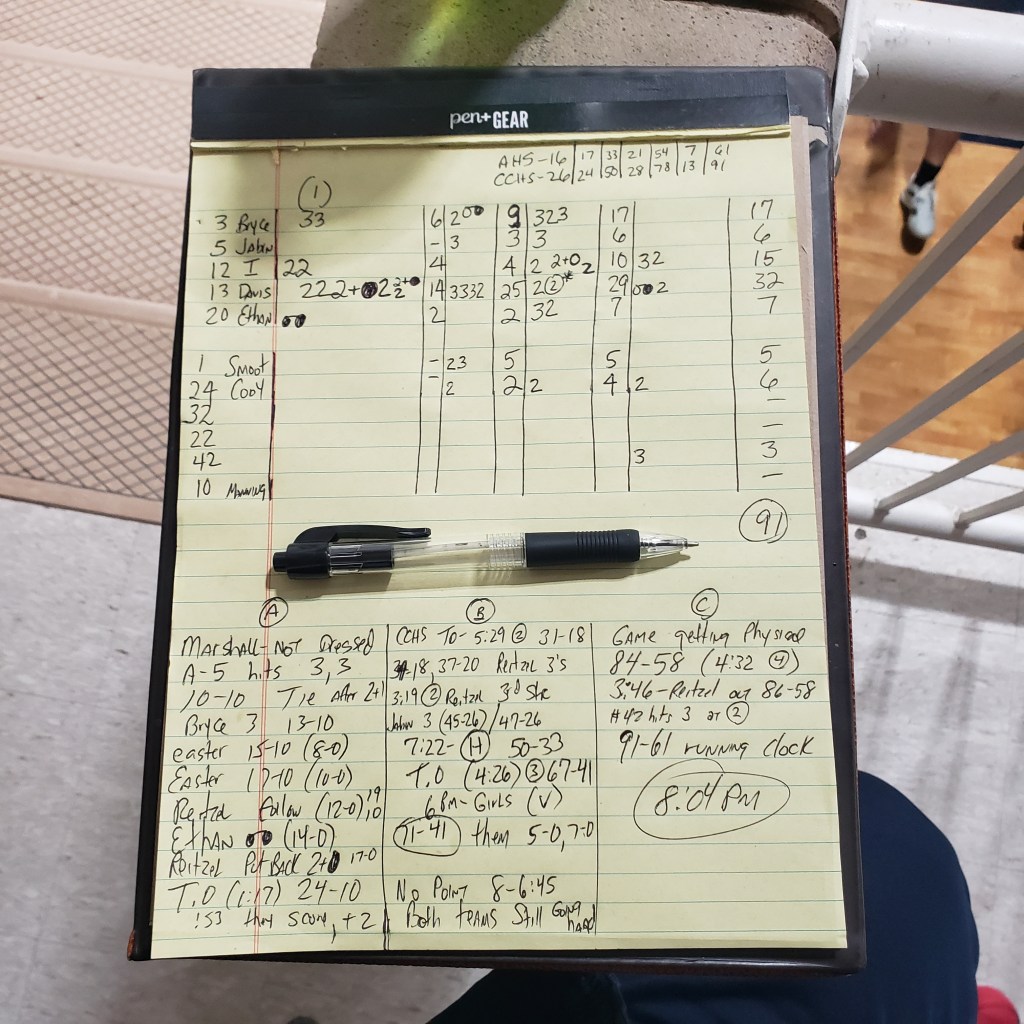 pen+GEAR
AHS-16 | 17 | 33 | 21 | 54 | 7 | 61
CCHS-26 | 24 | 50 | 28 | 78 | 13 | 91
(1)
3 Bryce 33 | 6 | 200 | 9 | 323 | 17 | | 17
5 Jahn | - | 3 | 3 | 3 | 6 | | 6
12 I 22 | 4 | | 4 | 2 2+0 2 | 10 | 32 | 15
13 Davis 222+ 2 2 2+ | 14 | 3332 | 25 | 2(2)* | 29 | 2 | 32
20 Ethan | 2 | | 2 | 32 | 7 | | 7
1 Smoot | - | 23 | 5 | | 5 | | 5
24 Cody | - | 2 | 2 | 2 | 4 | 2 | 6
32 -
22 -
42 3 | 3
10 Manning -
(91)
(A)
Marshall-Not Dressed
A-5 hits 3,3
10-10 Tie after 2+1
Bryce 3 13-10
easter 15-10 (8-0)
Easter 17-10 (10-0)
Reitzel follow (12-0) 19 10
Ethan (14-0)
Reitzel Put Back 2+ 17-0
T.O (1:17) 24-10
:53 they score, +2
(B)
CCHS TO- 5:29 (2) 31-18
18, 37-20 Reitzel 3's
3:19 (2) Reitzel 3rd Str
Jahn 3 (45-26) / 47-26
7:22- (H) 50-33
T.O (4:26) (3) 67-41
6 PM- Girls (V)
(71-41) them 5-0, 7-0
No Point 8-6:45
Both teams Still Going hard
(C)
Game getting Physical
84-58 (4:32 (4))
3:46-Reitzel out 86-58
#42 hits 3 at (2)
91-61 running clock
(8:04 PM)